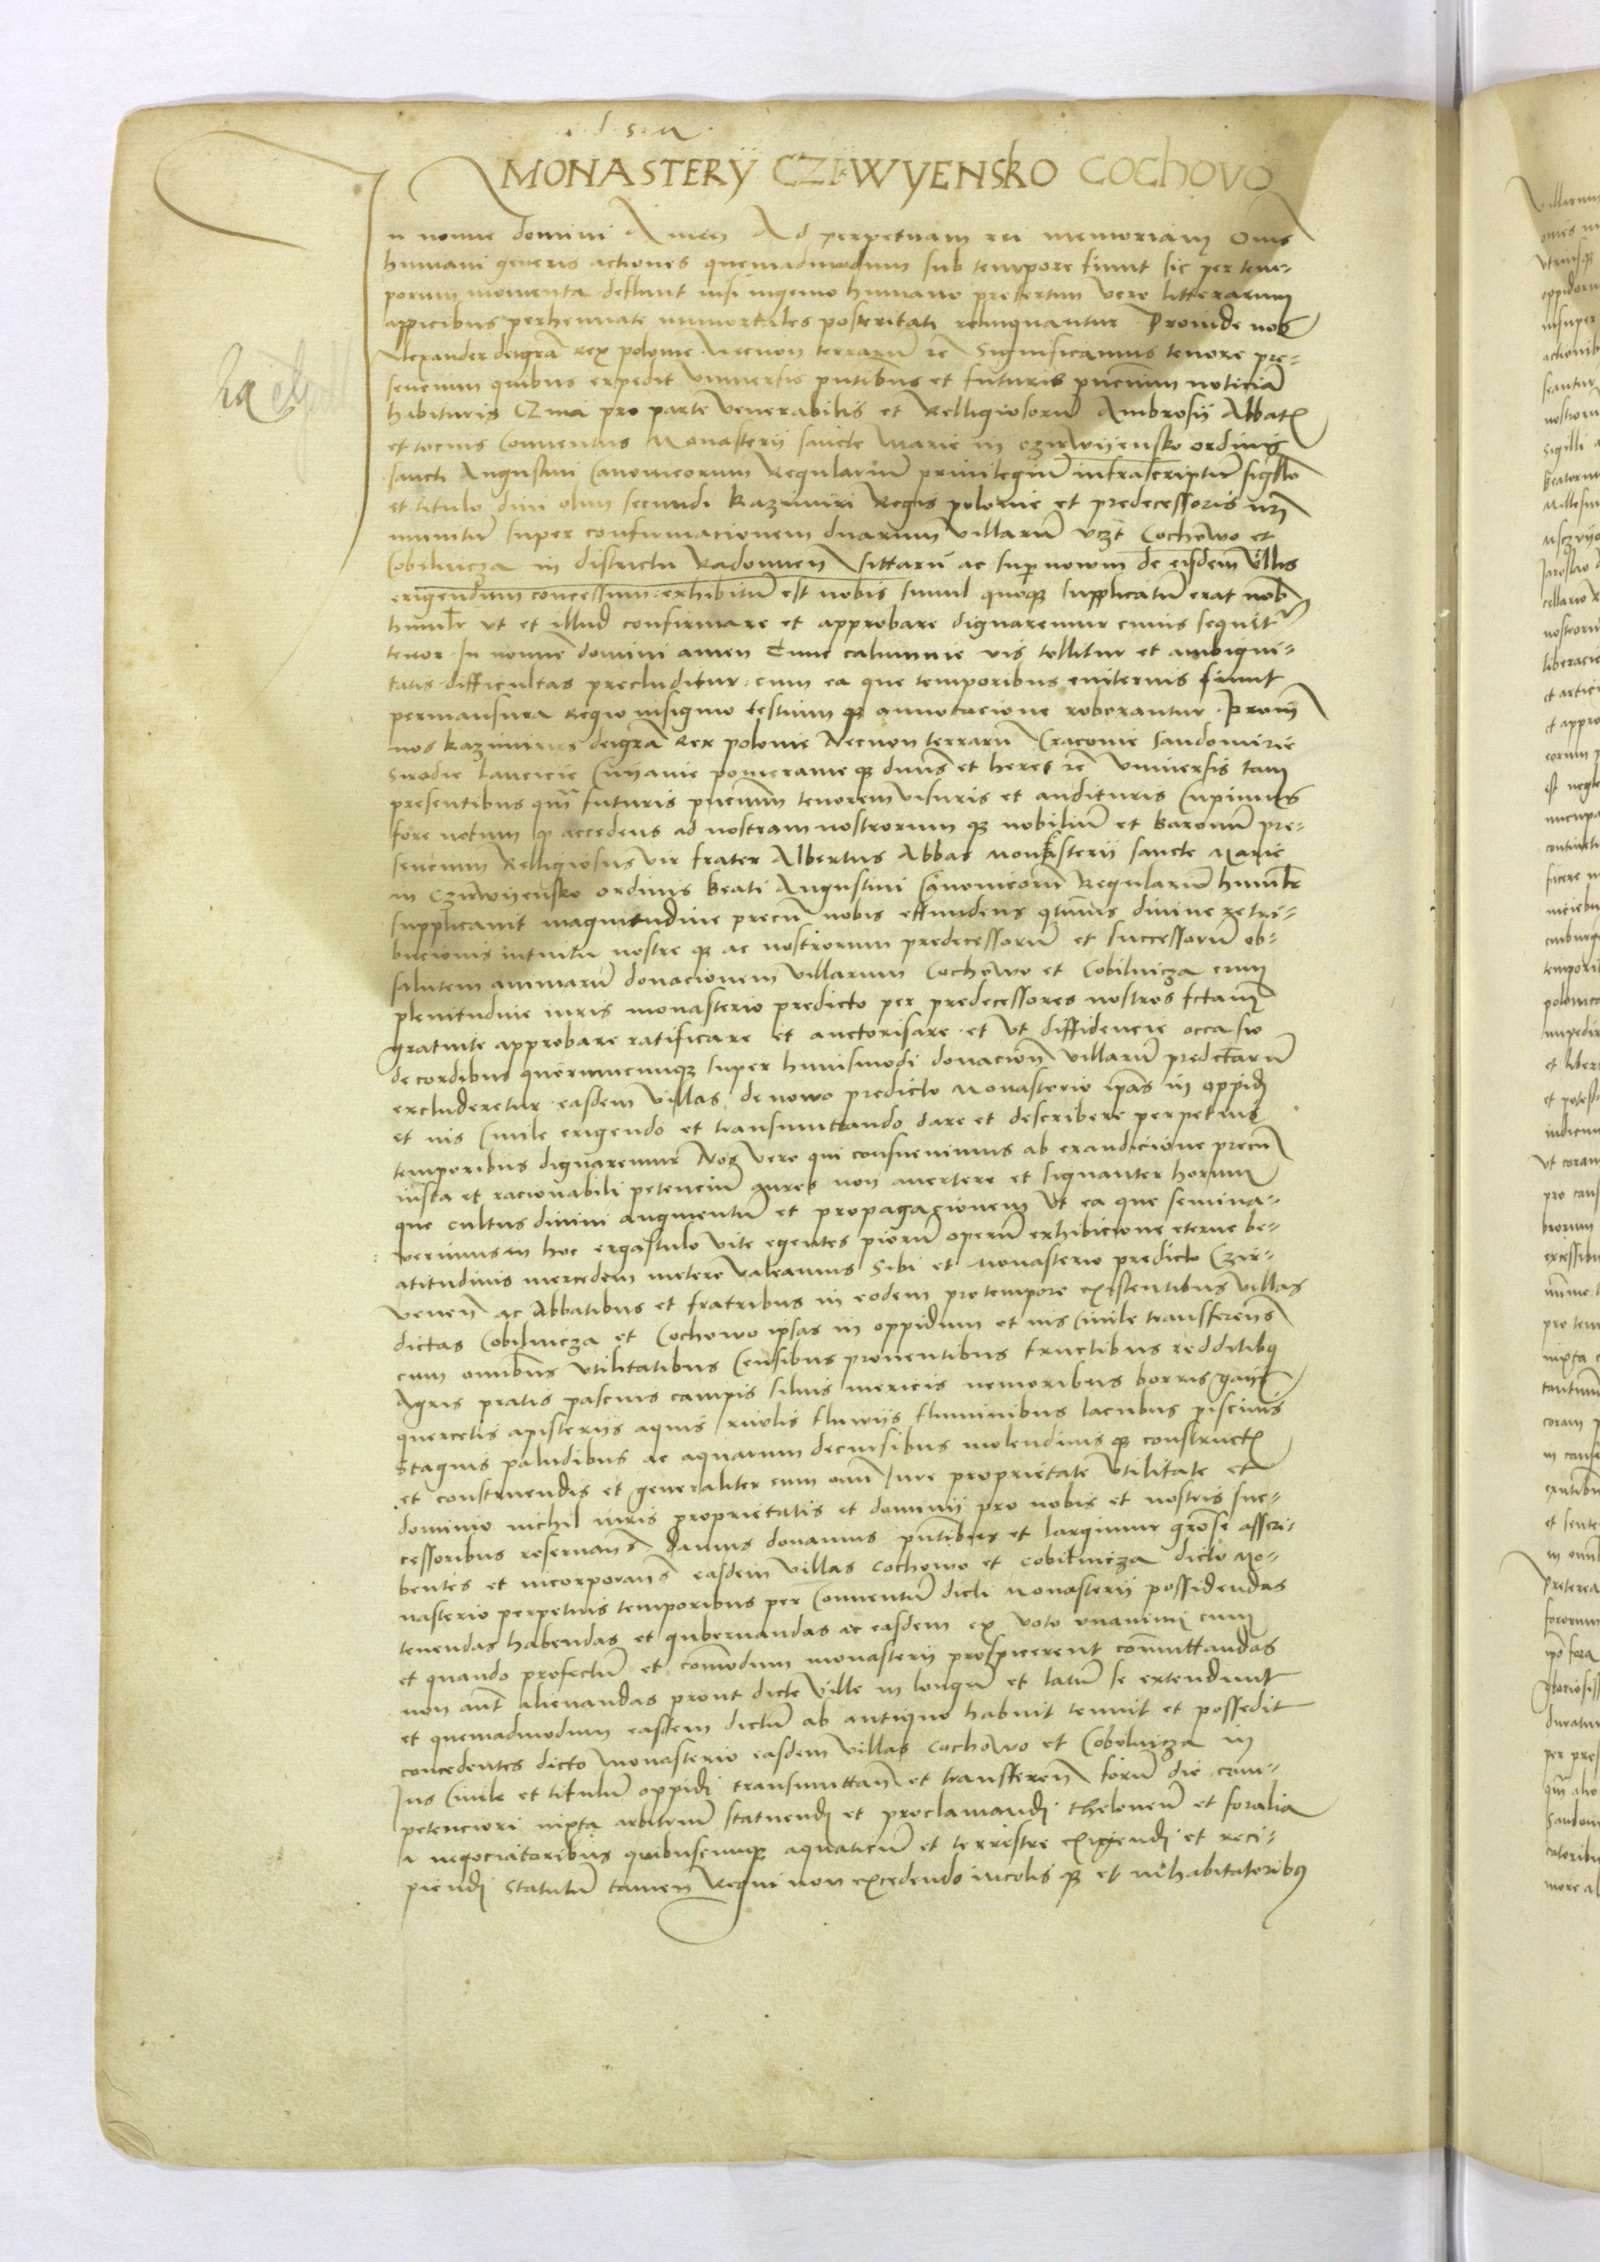 MONASTERY CZIRWYENSKO COCHOVO
In nomine domini Amen Ad perpetuam rei memoriam Omnes
humani generis actiones quemadmodum sub tempore fiunt sic per tem-
porum momenta defluunt nisi ingenio humano presertim vero litterarum
appicibus perhennate immortales posteritati relinquantur Proinde nos
Alexander dei gra Rex polonie Necnon terrarum etc Significamus tenore pre-
sencium quibus expedit vniversis pntibus et futuris pncium noticiam
habituris Q̄m pro parte venerabilis et Relligiosorum Ambrosij Abbatis
et tocius Conventus Monasterij sancte Marie in Czirwyensko ordinis
sancti Augustini Canonicorum Regularium privilegium infrascriptum sigillo
et titulo dni olim secundi Kazimiri Regis polonie et predecessoris nri
munitum super confirmacionem duarum villarum vzt Cochowo et
Cobilnicza in districtu Radomien sittarum ac sup novum de eisdem villis
erigendum concessum exhibitum est nobis simul quoque supplicatum erat nobis
humilr vt et illud confirmare et approbare dignaremur cuius sequitur
tenor In nomine domini amen Tunc calumnie vis tollitur et ambigui-
tatis difficultas precluditur cum ea que temporibus eviternis sunt
permansura Regio insignio testium que annotacione roborantur Proinde
nos Kazimirus dei gra Rex polonie Necnon terrarum Cracovie Sandomirie
Siradie Lancicie Cuyavie pomeranie que dnus et heres etc vniversis tam
presentibus qm futuris pncium tenorem visuris et audituris Cupimus
fore notum q accedens ad nostram nostrorum que nobilium et Baronum pre-
sencium Relligiosus vir frater Albertus Abbas Monasterij sancte Marie
in Czirwyensko ordinis Beati Augustini Canonicorum Regularium humilr
supplicavit magnitudine precum nobis effundens q̄tenus divine retri-
bucionis intuitu nostre que ac nostrorum predecessorum et successorum ob
salutem animarum donacionem villarum Cochowo et Cobilnicza cum
plenitudine iuris monasterio predicto per predecessores nostros fctam
gratuite approbare ratificare et auctorisare et vt diffidencie occasio
de cordibus quorumcunque super huiusmodi donacione villarum predictarum
excluderetur easdem villas de novo predicto Monasterio ipsas in oppidum
et ius Civile erigendo et transmutando dare et describere perpetuis
temporibus dignaremur Nos vero qui consuevimus ab exaudicione precum
iusta et racionabili petencium aures non avertere et signanter horum
que cultus divini augmentum et propagacionem vt ea que semina-
verimus in hoc ergastulo vite egentes piorum operum exhibicione eterne be-
atitudinis mercedem metere valeamus Sibi et Monasterio predicto Czir-
venen ac Abbatibus et fratribus in eodem pro tempore existentibus villas
dictas Cobilnicza et Cochowo ipsas in oppidum et ius Civile transferens
cum omnibus vtilitatibus Censibus proventibus fructibus redditibus
Agris pratis pascuis campis silvis mericis nemoribus borris gaiis
quercetis apisterijs aquis rivolis fluwijs fluminibus lacubus piscinis
Stagnis paludibus ac aquarum decursibus molendinis que constructis
et construendis et generaliter cum omni Iure proprietate vtilitate et
dominio nichil iuris proprietatis et dominij pro nobis et nostris suc-
cessoribus reservans Damus donamus pntibus et largimur grose asscri-
bentes et incorporans easdem villas Cochowo et Cobilnicza dicto Mo-
nasterio perpetuis temporibus per Conventum dicti Monasterij possidendas
tenendas habendas et gubernandas ac easdem ex voto vnanimi cum
et quando profectum et comodum monasterij prospicerent committandas
non aut alienandas prout dicte ville in longum et latum se extendunt
et quemadmodum easdem dictum ab antiquo habuit tenuit et possedit
concedentes dicto Monasterio easdem villas Cochowo et Cobilnicza in
Ius Civile et titulum oppidi transmuttan et transferen forum die com-
petenciori iuxta arbitrium statuendi et proclamandi theloneum et foralia
a negociatoribus quibuscunque aquaticum et terrestre exigendi et reci-
piendi Statutum tamen Regni non excedendo incolis que et inhabitatoribus